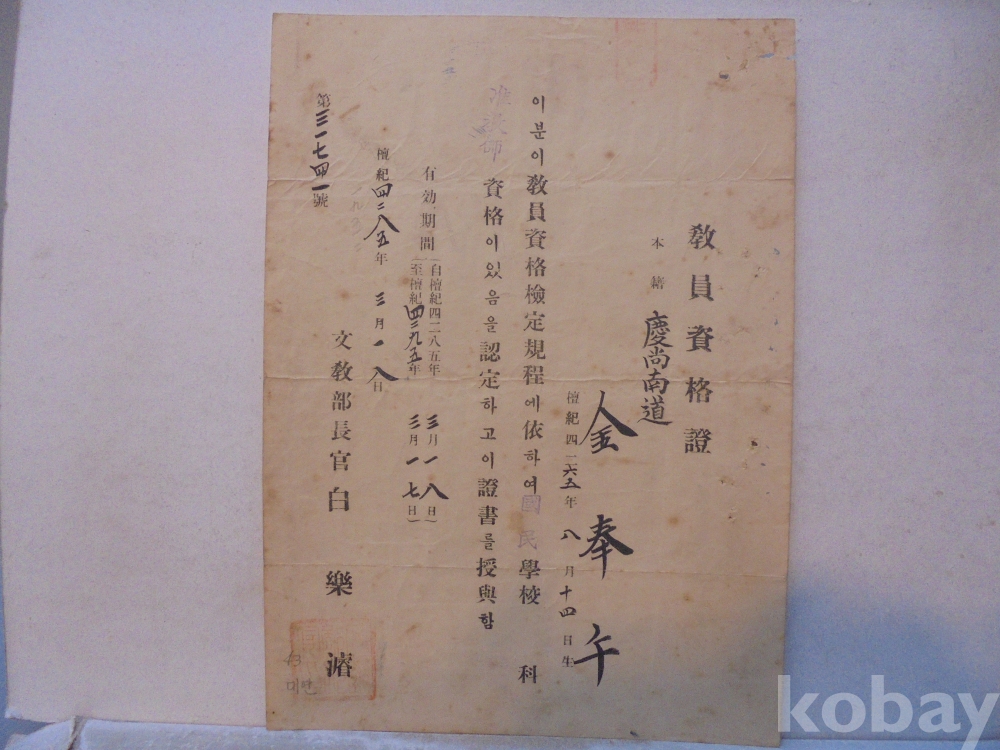 教員資格證
本籍 慶尚南道
金奉午
檀紀四二六五年 八月十四日生
이분이敎員資格檢定規程에依하여國民學校 科
准敎師資格이있음을認定하고이證書를授與함
有効期間
自檀紀四二八五年 三月一八日
至檀紀四二九五年 三月一七日
檀紀四二八五年 三月一八日
文敎部長官白樂濬
第三一七四一號
kobay